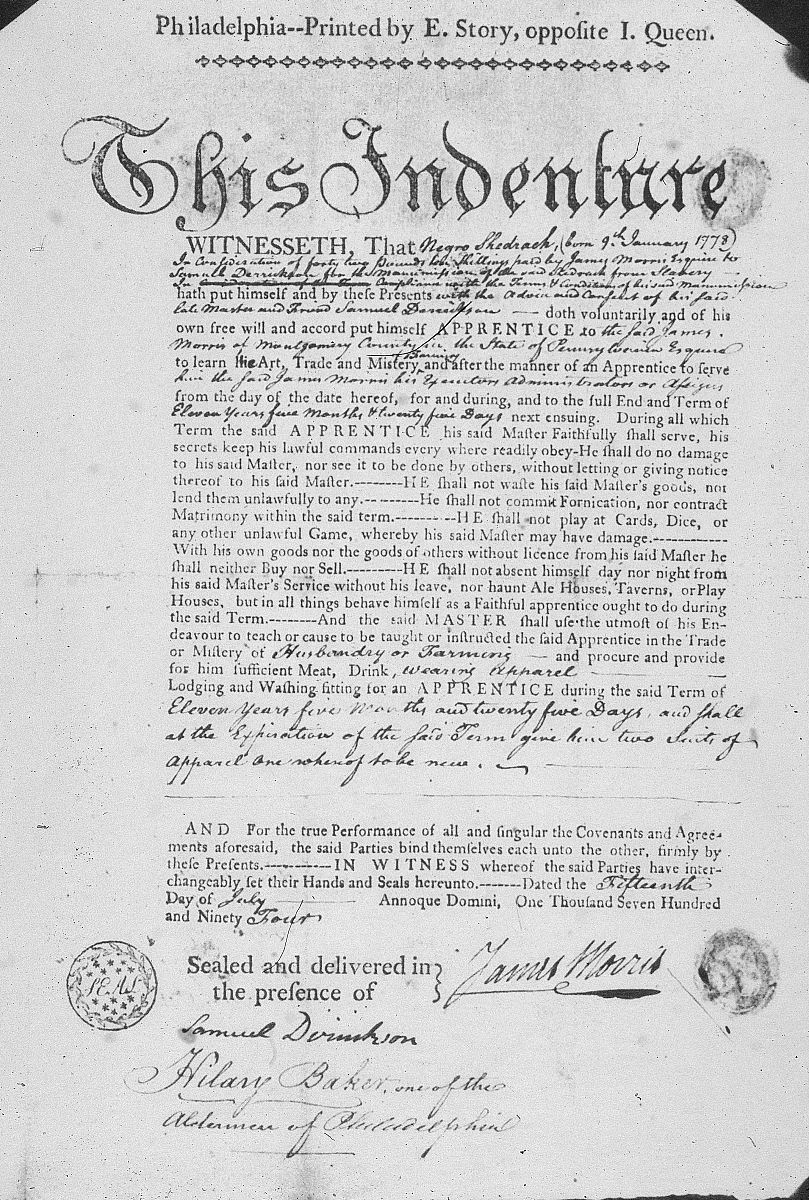 Philadelphia--Printed by E. Story, opposite I. Queen.
This Indenture
WITNESSETH, That Negro Shedrach, (born 9th January 1778)
In Consideration of forty two Pounds ten Shillings paid by James Morris Esquire to
Samuel Derrickson for the Manumission of the said Shedrach from Slavery
In Compliance with the Terms & Condition of his said Manumission
hath put himself and by these Presents with the Advice and Consent of his said
late Master and Friend Samuel Derrickson — doth voluntarily and of his
own free will and accord put himself APPRENTICE to the said James
Morris of Montgomery County in the State of Pennsylvania Esquire
to learn his Art, Trade and Mistery and after the manner of an Apprentice to serve
him the said James Morris his Executors Administrators or Assigns
from the day of the date hereof, for and during, and to the full End and Term of
Eleven Years five Months & twenty five Days next ensuing. During all which
Term the said APPRENTICE his said Master Faithfully shall serve, his
secrets keep his lawful commands every where readily obey-He shall do no damage
to his said Master, nor see it to be done by others, without letting or giving notice
thereof to his said Master.--------HE shall not waste his said Master's goods, nor
lend them unlawfully to any.--------He shall not commit Fornication, nor contract
Matrimony within the said term.---------HE shall not play at Cards, Dice, or
any other unlawful Game, whereby his said Master may have damage.-----------
With his own goods nor the goods of others without licence from his said Master he
shall neither Buy nor Sell.---------HE shall not absent himself day nor night from
his said Master's Service without his leave, nor haunt Ale Houses, Taverns, or Play
Houses, but in all things behave himself as a Faithful apprentice ought to do during
the said Term.--------And the said MASTER shall use the utmost of his En-
deavour to teach or cause to be taught or instructed the said Apprentice in the Trade
or Mistery of Husbandry or Farming — and procure and provide
for him sufficient Meat, Drink, wearing Apparel —
Lodging and Washing fitting for an APPRENTICE during the said Term of
Eleven Years five Months and twenty five Days, and shall
at the Expiration of the said Term give him two Suits of
Apparel one whereof to be new.
AND For the true Performance of all and singular the Covenants and Agree-
ments aforesaid, the said Parties bind themselves each unto the other, firmly by
these Presents.-----------IN WITNESS whereof the said Parties have inter-
changeably set their Hands and Seals hereunto.-------Dated the Fifteenth
Day of July — Annoque Domini, One Thousand Seven Hundred
and Ninety Four
Sealed and delivered in } James Morris
the presence of
SEAL
Samuel Dirrickson
Hilary Baker, one of the
Aldermen of Philadelphia